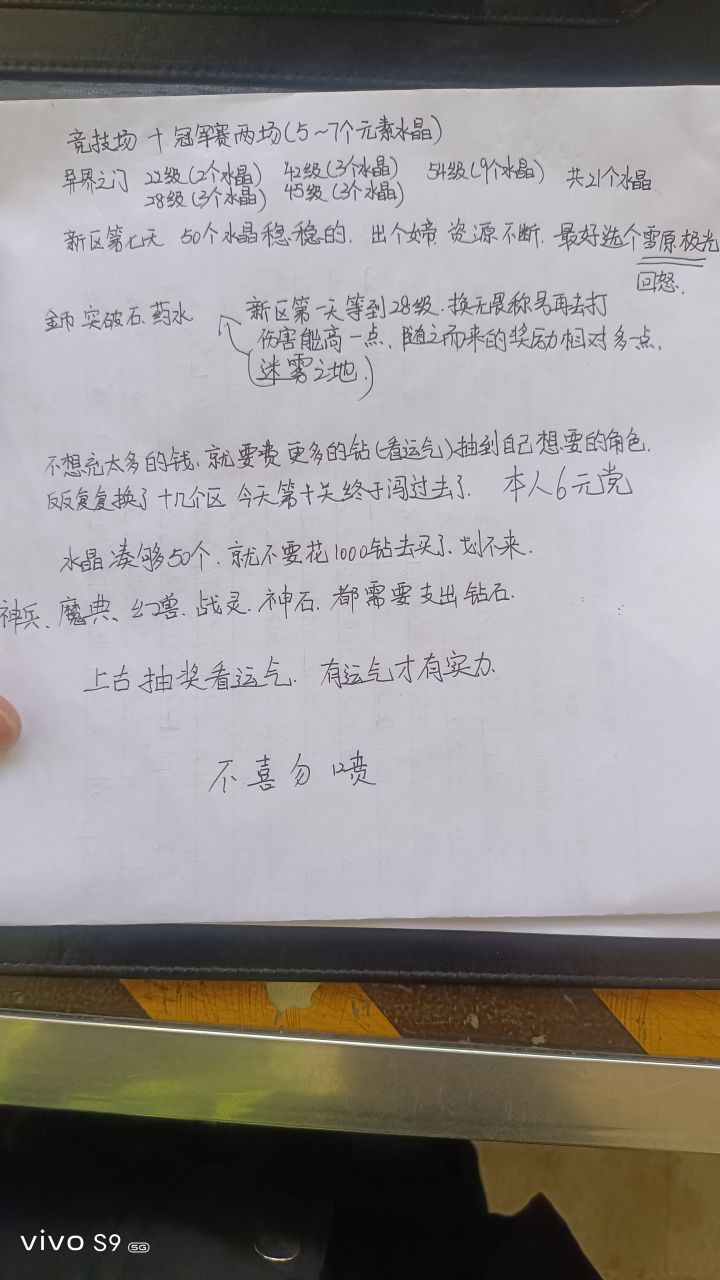 竞技场 + 冠军赛两场(5~7个元素水晶)
异界之门 22级(2个水晶) 42级(3个水晶) 54级(9个水晶) 共21个水晶
28级(3个水晶) 45级(3个水晶)
新区第七天 50个水晶稳稳的. 出个 资源不断. 最好选个雪原极光
回怒.
金币 突破石.药水 新区第一天等到28级.换无畏称号再去打
伤害能高一点、随之而来的奖励相对多一点.
(迷雾之地.)
不想充太多的钱、就要费更多的钻(看运气)抽到自己想要的角色.
反反复复换了十几个区 今天第十关终于闯过去了. 本人6元党
水晶凑够50个. 就不要花1000钻去买了.划不来.
神兵、魔典、幻兽.战灵.神石.都需要支出钻石.
上古抽奖看运气. 有运气才有实力.
不喜勿喷
vivo S9 5G